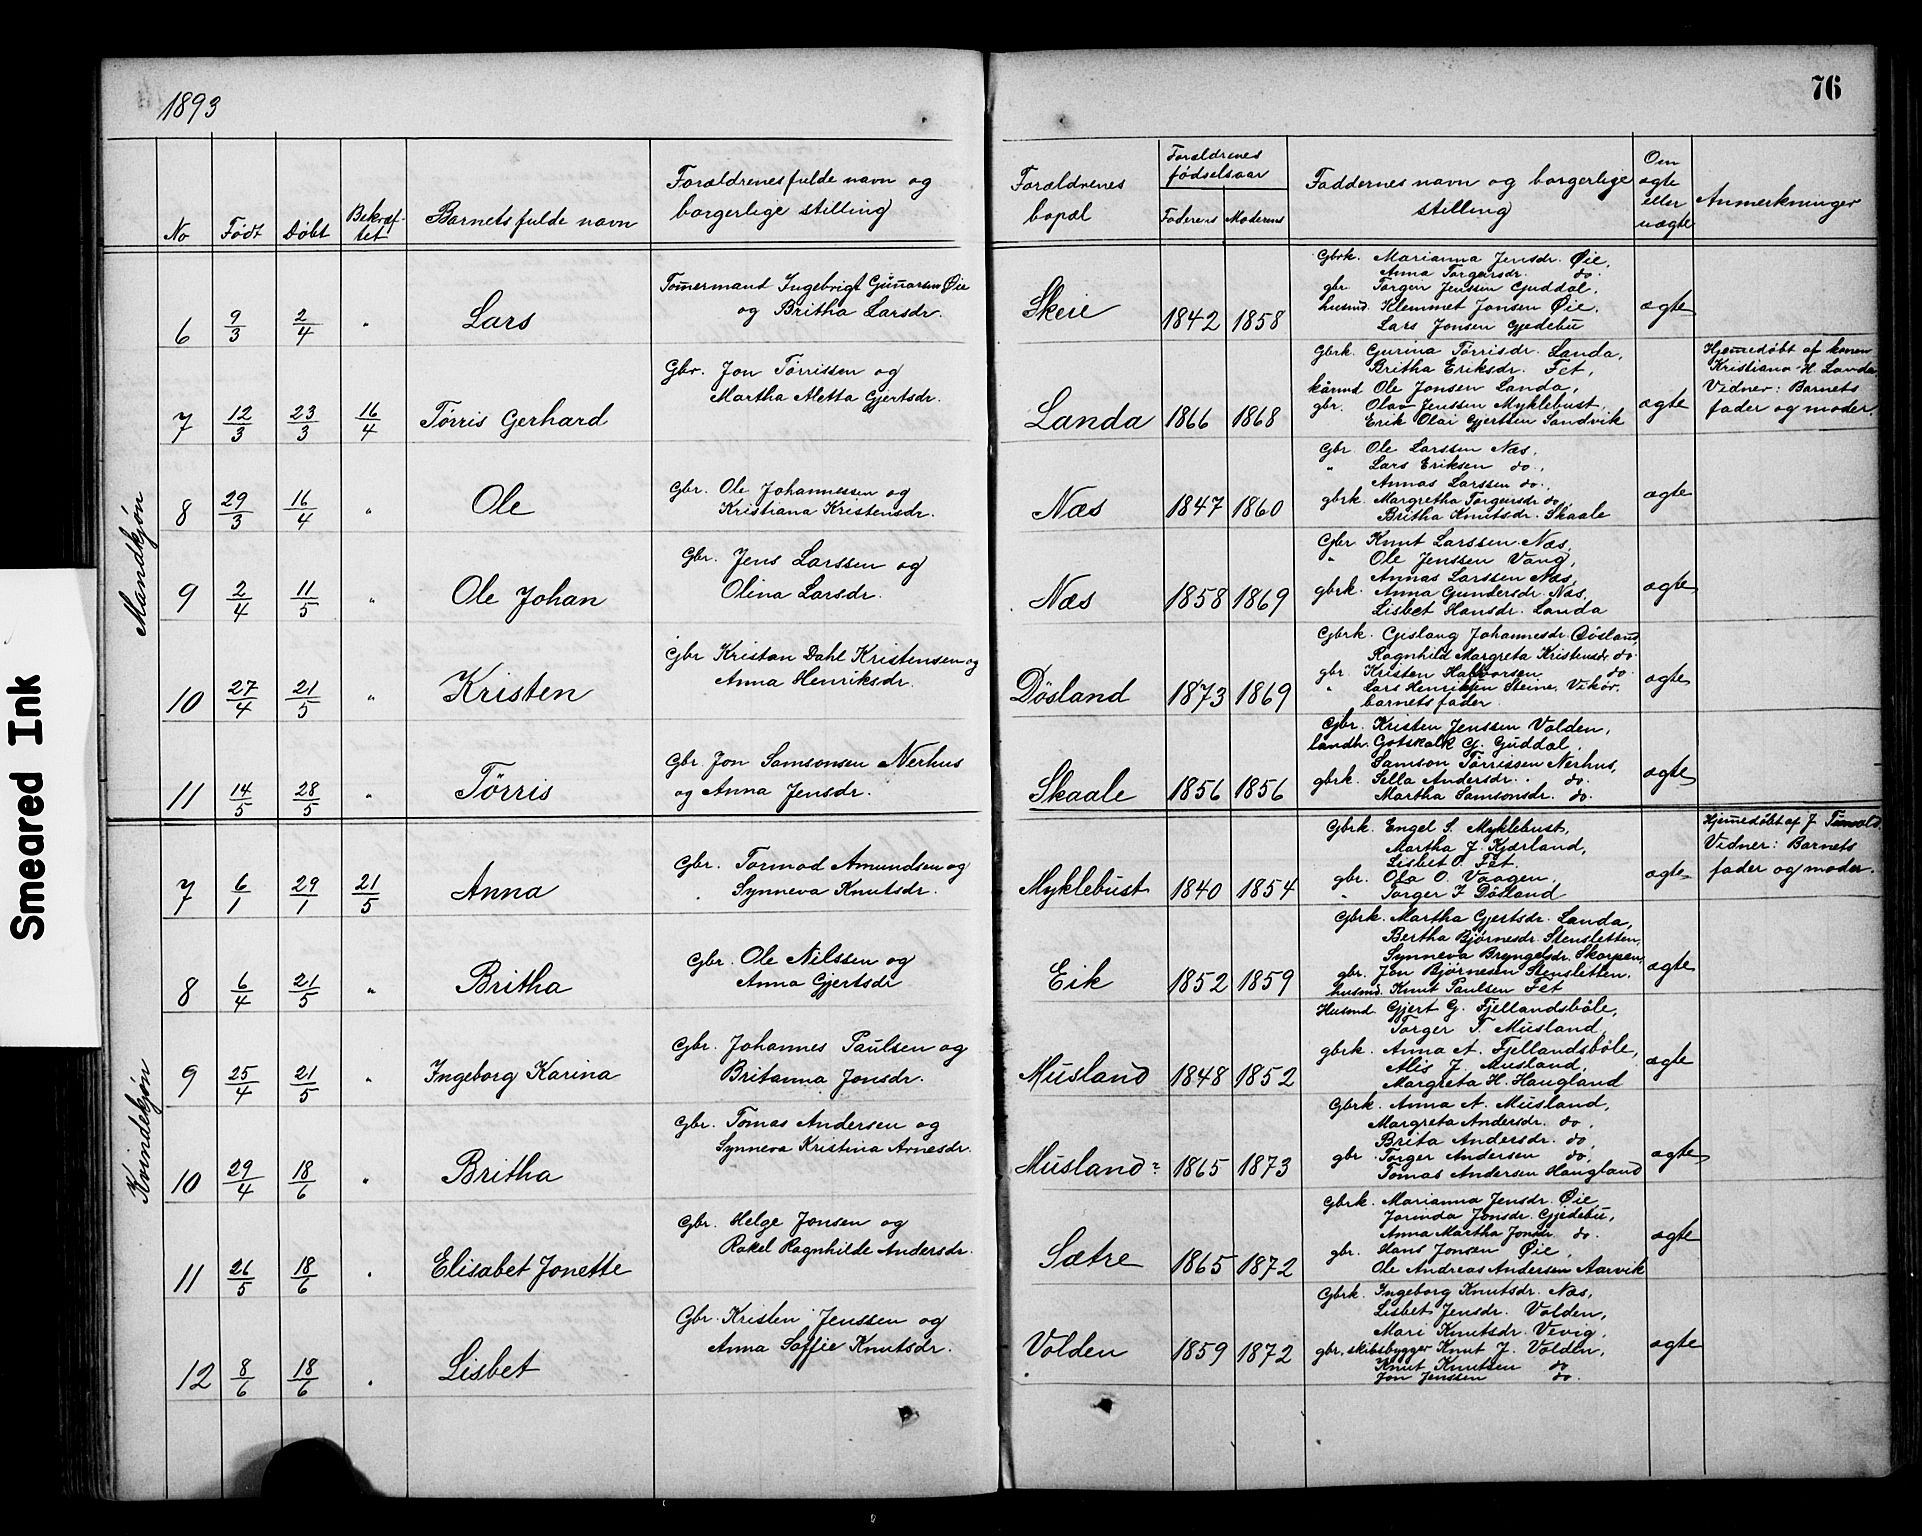 1893
76
No
Født
Døbt
Bekræf-
tet
Barnets fulde navn
Forældrenes fulde navn og
borgerlige stilling
Forældrenes
bopæl
Forældrenes
fødselsaar
Faderens
Moderens
Faddernes navn og borgerlige
stilling
Om
ægte
eller
uægte
Anmerkninger
Mandkjøn
6 9/3 2/4 " Lars
Tømermand Ingebrigt Gunarsen Øie
og Britha Larsdr.
Skeie 1842 1858
Gbrk. Marianna Jensdr. Øie,
Anna Torgersdr. do.
gbr Torger Jenssen Guddal,
husmd. Klemmet Jonsen Øie,
Lars Jonsen Gjedebu
ægte
7 12/3 23/3 16/4 Tørris Gerhard
Gbr. Jon Tørrissen og
Martha Aletta Gjertsdr.
Landa 1866 1868
Gbrk. Gurina Tørrisdr. Landa,
Britha Eriksdr. Fet,
kårmd Ole Jonsen Landa,
gbr. Olav Jenssen Myklebust,
Erik Olai Gjertsen Sandvik
ægte
Hjemedøbt af konen
Kristiana H. Landa
Vidner: Barnets
fader og moder.
8 29/3 16/4 " Ole
Gbr. Ole Johannessen og
Kristiana Kristensdr.
Næs 1847 1860
Gbr Ole Larssen Næs,
" Lars Eriksen do.,
Annas Larssen do.,
gbrk. Margretha Torgersdr do.,
Britha Knutsdr. Skaale
ægte
9 2/4 11/5 " Ole Johan
Gbr. Jens Larssen og
Olina Larsdr.
Næs 1858 1869
Gbr Knut Larssen Næs,
" Ole Jenssen Vang,
Annas Larssen Næs,
gbrk. Anna Gundersdr. Næs,
Lisbet Hansdr. Landa
ægte
10 27/4 21/5 " Kristen
Gbr Kristan Dahl Kristensen og
Anna Henriksdr.
Døsland 1873 1869
Gbrk. Gislaug Johannesdr. Døsland
Ragnhild Margreta Kristensdr. do.
gbr. Kristen Halvorsen do.
" Lars Henriksen Steine, Vikør,
barnets fader.
ægte
11 14/5 28/5 " Tørris
Gbr. Jon Samsonsen Nerhus
og Anna Jensdr.
Skaale 1856 1856
Gbr. Kristen Jenssen Valden,
landh. Gotskalk G. Guddal,
Samson Tørrissen Nerhus,
gbrk. Sella Andersdr. do.
Martha Samsonsdr. do.
ægte
Kvindekjøn
7 6/1 29/1 21/5 Anna
Gbr. Tormod Amundsen og
Synneva Knutsdr.
Myklebust 1840 1854
Gbrk. Engel S. Myklebust,
Martha J. Kjærland,
Lisbet O. Fet
gbr. Ola O. Vaagen,
" Torger J Døsland
ægte
Hjemedøbt af J.
Vidner: Barnets
fader og moder.
8 6/4 21/5 " Britha
Gbr. Ole Nilssen og
Anna Gjertsdr
Eik 1852 1859
Gbrk. Martha Gjertsdr. Landa,
Bertha Bjørnesdr. Stensletten,
Synneva Bryngelsdr. Skorpen,
gbr. Jon Bjørnesen Stensletten,
husmd. Knut Paulsen Fet
ægte
9 25/4 21/5 " Ingeborg Karina
Gbr. Johannes Paulsen og
Britanna Jonsdr.
Musland 1848 1852
Husmd Gjert G. Fjellandsbøle,
Torger T. Musland,
gbrk. Anna A. Fjellandsbøle,
Alis J. Musland,
Margreta H. Haugland
ægte
10 29/4 18/6 " Britha
Gbr. Tomas Andersen og
Synneva Kristina Arnesdr.
Musland 1865 1873
Gbrk. Anna A. Musland,
Margreta Andersdr. do,
Brita Andersdr. do,
gbr Torger Andersen do,
Tomas Andersen Haugland
ægte
11 26/5 18/6 " Elisabet Jonette
Gbr. Helge Jonsen og
Rakel Ragnhilde Andersdr.
Sætre 1865 1872
Gbrk. Marianna Jensdr. Øie,
Jorinda Jonsdr. Gjedebu,
Anna Martha Jonsdr. do.
gbr. Hans Jonsen Øie,
Ole Andreas Andersen Aarvik
ægte
12 8/6 18/6 " Lisbet
Gbr. Kristen Jenssen og
Anna Saffie Knutsdr.
Valden 1859 1872
Gbrk. Ingeborg Knutsdr. Næs,
Lisbet Jensdr. Valden,
Mari Knutsdr. Vevig,
gbr. skibsbygger Knut J. Valden,
Knut Knutsen do
Jon Jenssen do.
ægte
Smeared Ink